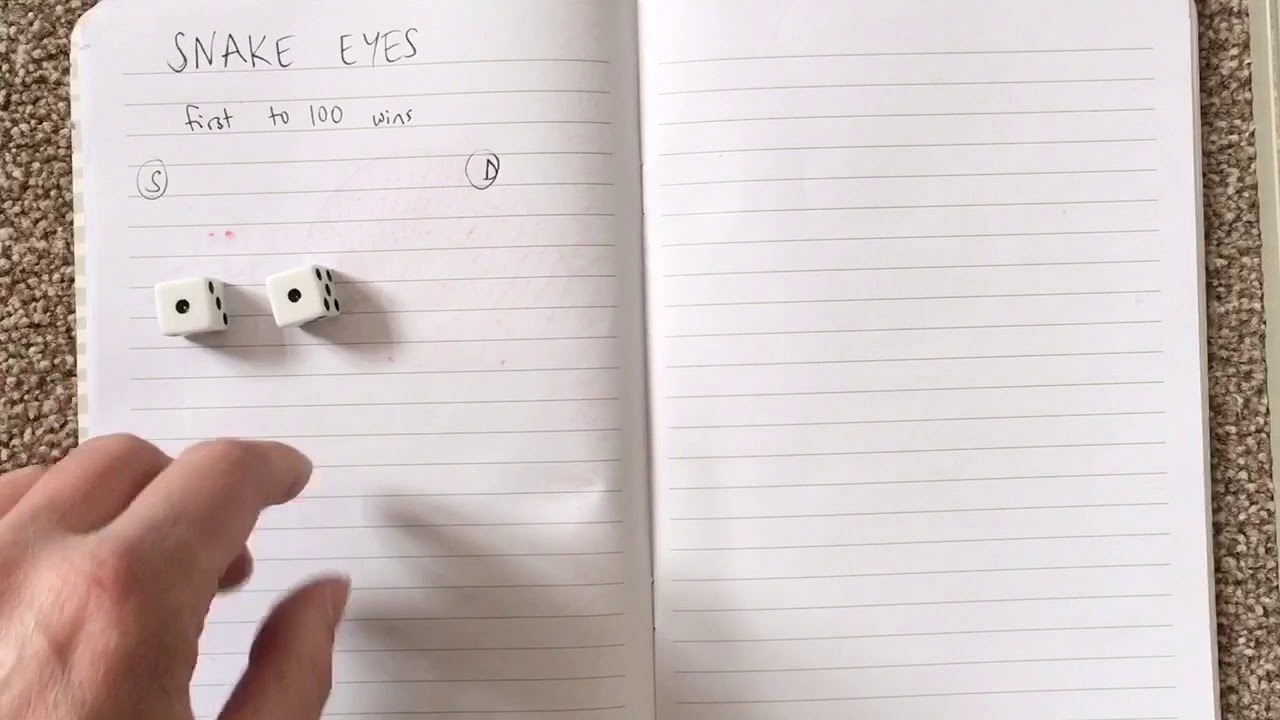 SNAKE EYES
first to 100 wins
S D